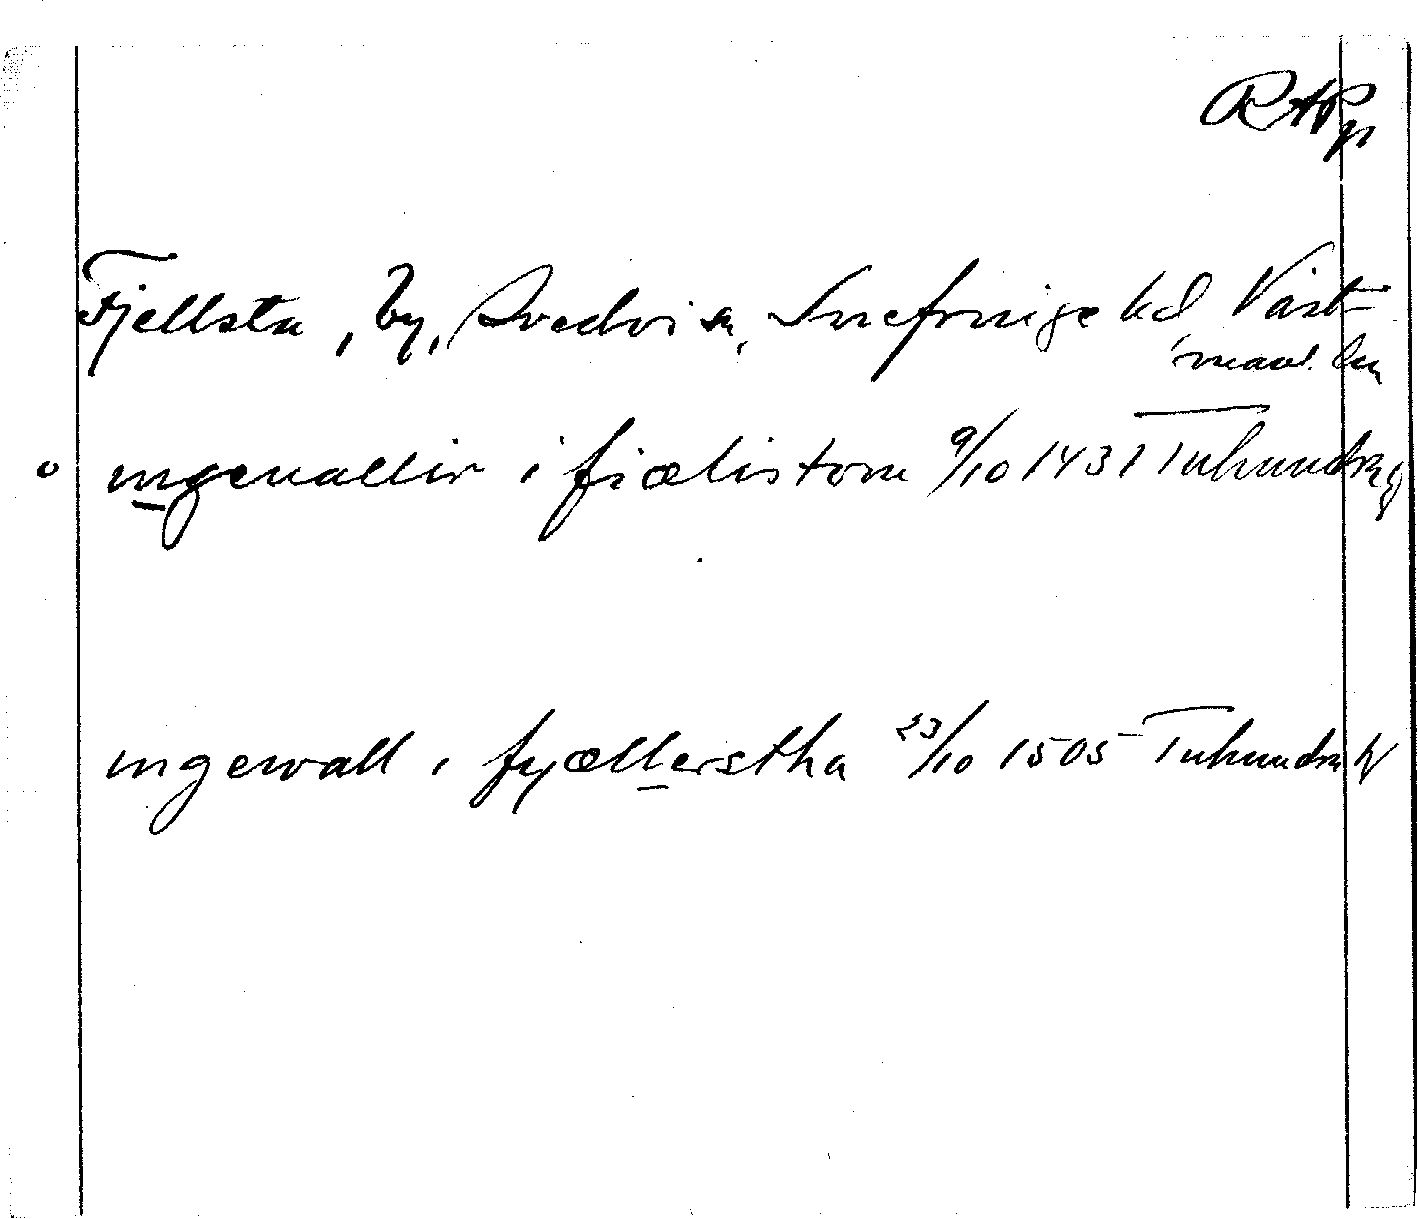 RAPp
Fjellsta, by, Svedvi sn, Snefringe hd Väst-
manl. län
ingeuallir i fiælistom 9/10 1431 Tuhundra
ingewall i fyællerstha 23/10 1505 Tuhundra